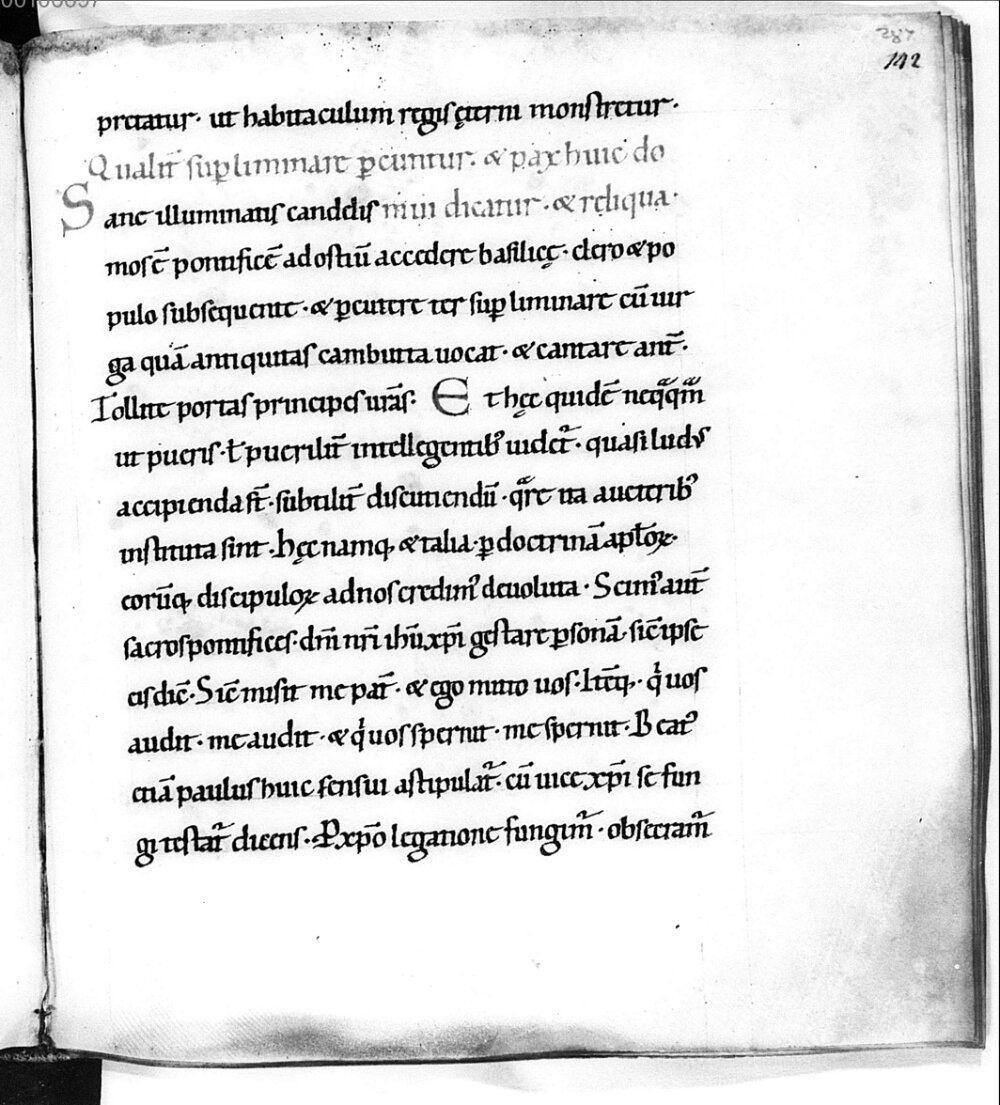 287
142
pretatur· ut habitaculum regis ęterni monstretur·
Qualit̄ sup liminare ꝑcutitur· & pax huic do
Sane illuminatis canddis mui dicatur·& reliqua·
mos ē pontificē ad ostiū accedere basilicę· clero & po
pulo subsequente·& ꝑcutere ter sup liminare cū uir
ga quā antiquitas cambutta uocat·& cantare ant̄·
Tollite portas principes urās· Et hęc quidē neqͣqͣm̄
ut pueris·ł puerilit̄ intellegentibꝰ uidet᷑·quasi ludꝰ
accipienda st̄·subtilit̄ discutiendū·qͣre ita auctoribꝰ
instituta sint·hęc namq; & talia·ꝑ doctrinā aptōꝝ·
eorūq; discipuloꝝ ad nos credimꝰ deuoluta·Scimꝰ aut̄
sacros pontifices·dn̄i nr̄i ihū xp̄i gestare ꝑsonā·sic̄ ipse
eis dic̄·Sic̄ misit me pat̄·& ego mitto uos·Itēq;·qͥ uos
audit·me audit·& qͥ uos spernit·me spernit·Beatꝰ
etiā paulus huic sensui astipulat᷑·cū uice xp̄i se fun
gi testat᷑ dicens·P xp̄o legatione fungim᷑·obsecram᷑